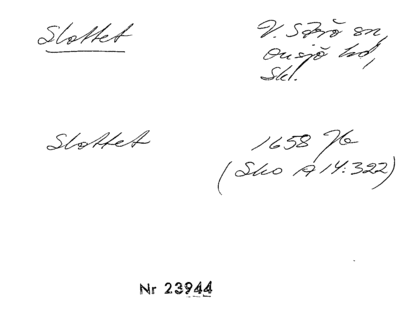 Slottet
V. Särö sn,
Onsjö hd,
Skl.
Slottet
1658 Jb
(Sko A 14:322)
Nr 23944